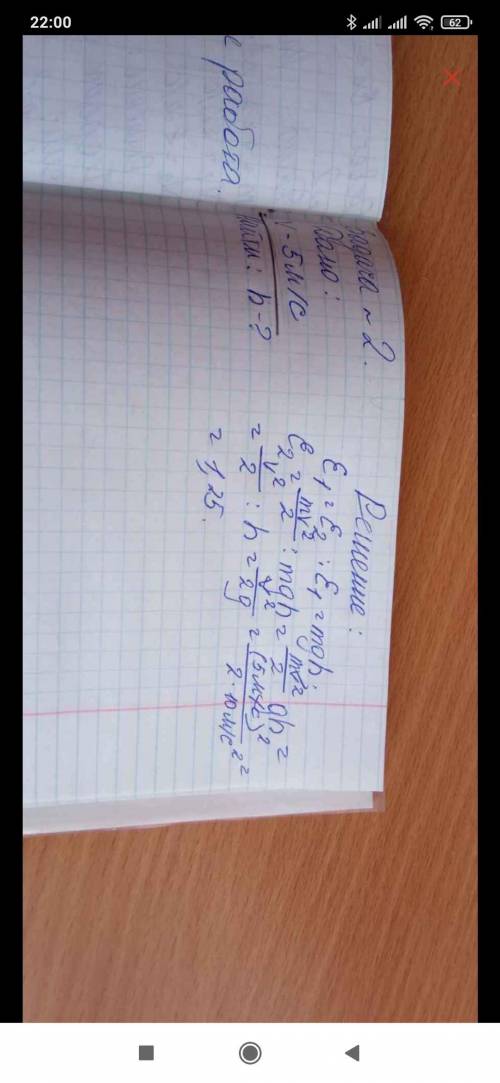 22:00
62
работа.
Задача ~ 2.
Дано:
V - 5 м/с
Найти: h - ?
Решение:
E₁ = E₂ : E₁ = mgh
E₂ = mv²/2 : mgh = mv²/2 gh =
= v²/2 : h = v²/2g = (5 м/с)²/2·10 м/с² =
= 1,25.